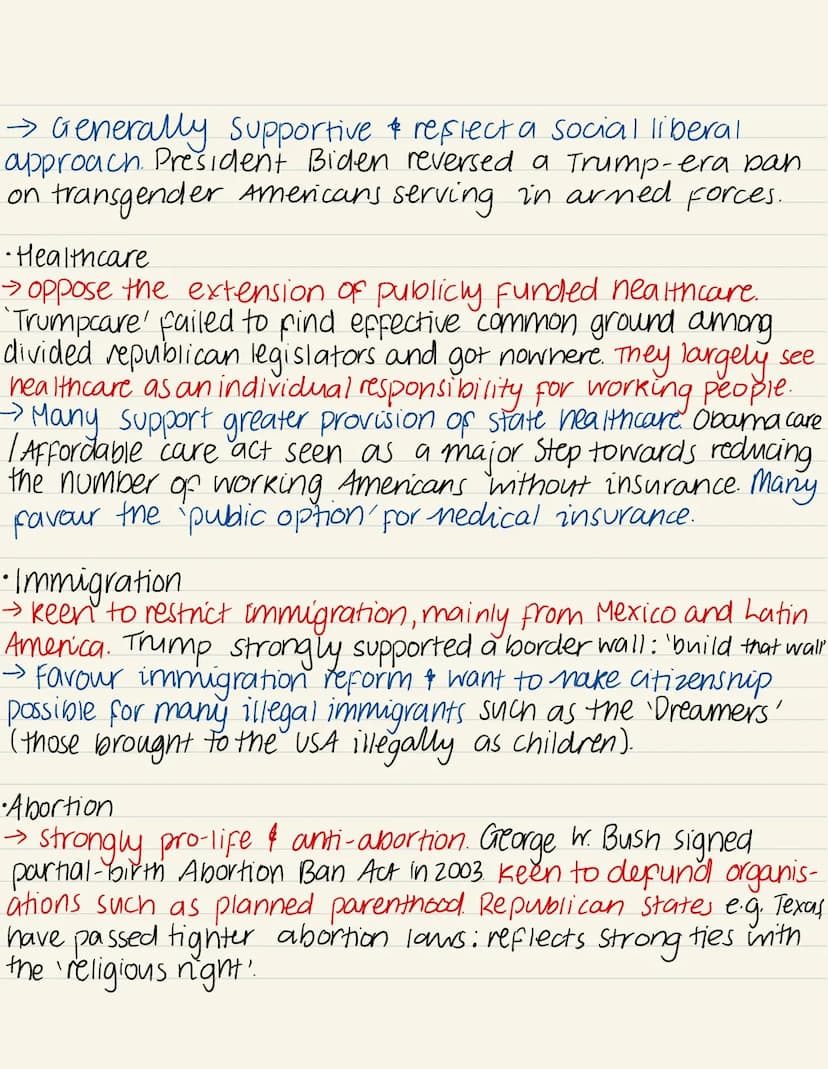 → Generally supportive & reflect a social liberal
approach. President Biden reversed a Trump-era ban
on transgender Americans serving in armed forces.
·Healthcare
→ oppose the extension of publicly funded healthcare.
'Trumpcare' failed to find effective common ground among
divided republican legislators and got nowhere. They largely see
healthcare as an individual responsibility for working people.
→ Many support greater provision of state healthcare. Obamacare
/Affordable care act seen as a major step towards reducing
the number of working Americans without insurance. Many
favour the 'public option' for medical insurance.
·Immigration
→ keen to restrict immigration, mainly from Mexico and Latin
America. Trump strongly supported a border wall: 'build that wall'
→ Favour immigration reform & want to make citizenship
possible for many illegal immigrants such as the 'Dreamers'
(those brought to the USA illegally as children).
·Abortion
→ strongly pro-life & anti-abortion. George W. Bush signed
partial-birth Abortion Ban Act in 2003. Keen to defund organis-
ations such as planned parenthood. Republican states e.g. Texas
have passed tighter abortion laws: reflects strong ties with
the 'religious right'.